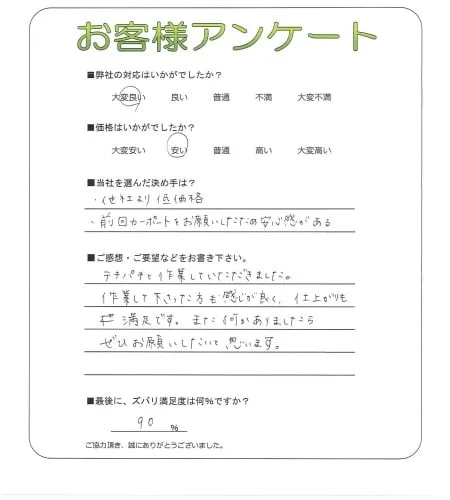 お客様アンケート
■弊社の対応はいかがでしたか？
大変良い 良い 普通 不満 大変不満
■価格はいかがでしたか？
大変安い 安い 普通 高い 大変高い
■当社を選んだ決め手は？
・他社より低価格
・前回カーポートをお願いしたため安心感がある
■ご感想・ご要望などをお書き下さい。
テキパキと作業していただきました。
作業して下さった方も感じが良く、仕上がりも
満足です。また何かありましたら
ぜひお願いしたいと思います。
■最後に、ズバリ満足度は何％ですか？
90 ％
ご協力頂き、誠にありがとうございました。